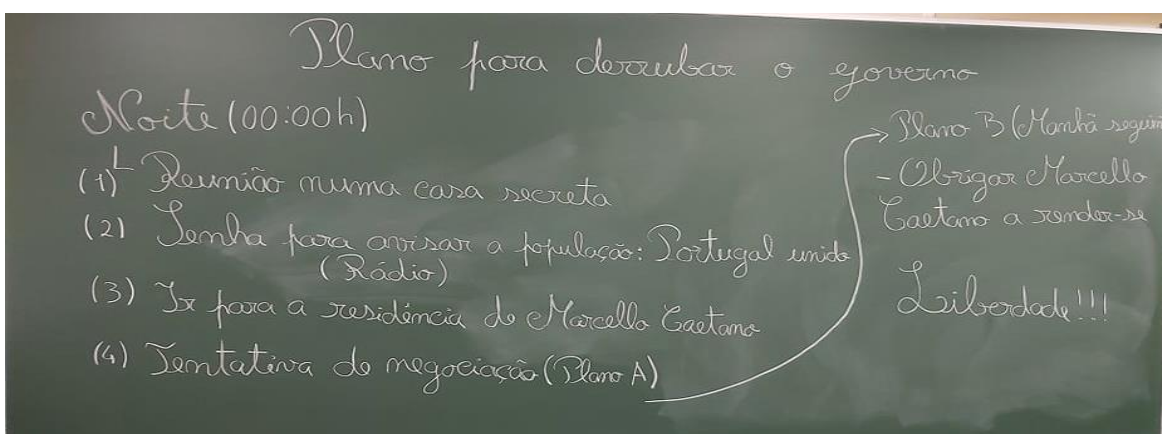 Plano para derrubar o governo
Noite (00:00h)
(1) Reunião numa casa secreta
(2) Senha para avisar a população: Portugal unido
(Rádio)
(3) Ir para a residência de Marcello Caetano
(4) Tentativa de negociação (Plano A)
Plano B (Manhã
- Obrigar Marcello
Caetano a render-se
Liberdade!!!